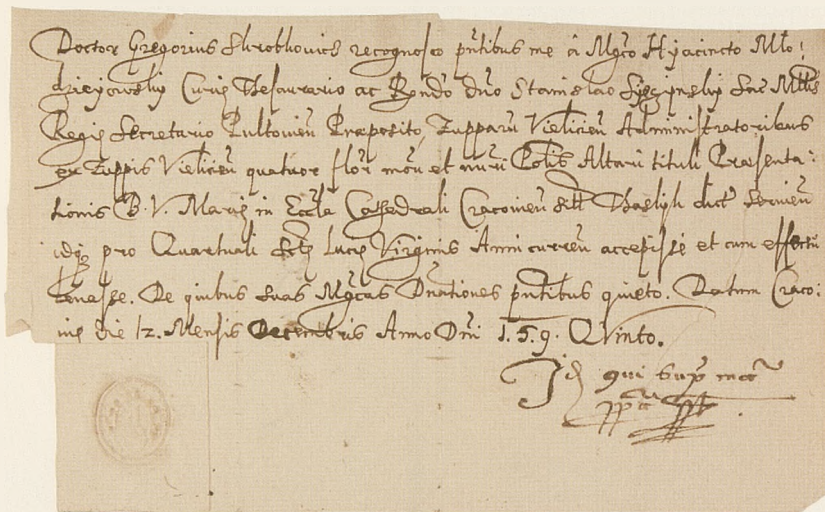 Doctor Gregorius Skrobkovicz recognosco pñtibus me à Mgco Hyacincto Mło:
dzieiowskÿ Curiȩ Thesaurario ac Rdo dño Stanislao Sac Mttis
Regiȩ Secretario Pultovień Præposito, Zupparũ Vielicień Administratoribus
ex Zuppis Vielicień quatuor flor moñ et nuři Polłis Altarij tituli Præsenta:
tionis B. V. Mariȩ in Eccła Cathedrali Cracovień dict
idq; pro Quartuali Luciȩ Virginis Anni curreñ accepisse et cum effectu
De quibus suas Mgcas Dñationes pñtibus quieto. Datum Craco:
uiȩ die 12. Mensis Decembris Anno Dñi 1.5.9. Qvinto.
Idē qui supr